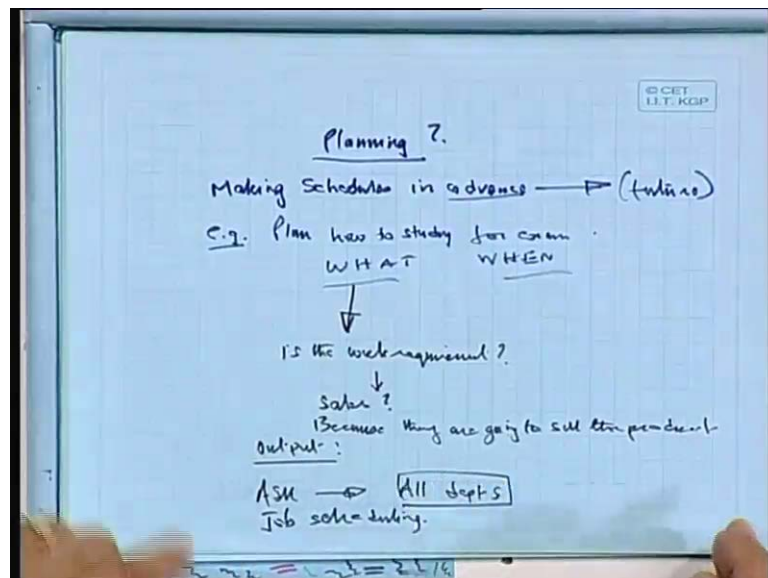 © CET
I.I.T. KGP
Planning ?
Making Schedules in advance → (future)
e.g. Plan how to study for exam.
WHAT WHEN
Is the work required ?
Sales ?
Because they are going to sell the product
output :
ASK → All depts
Job scheduling.